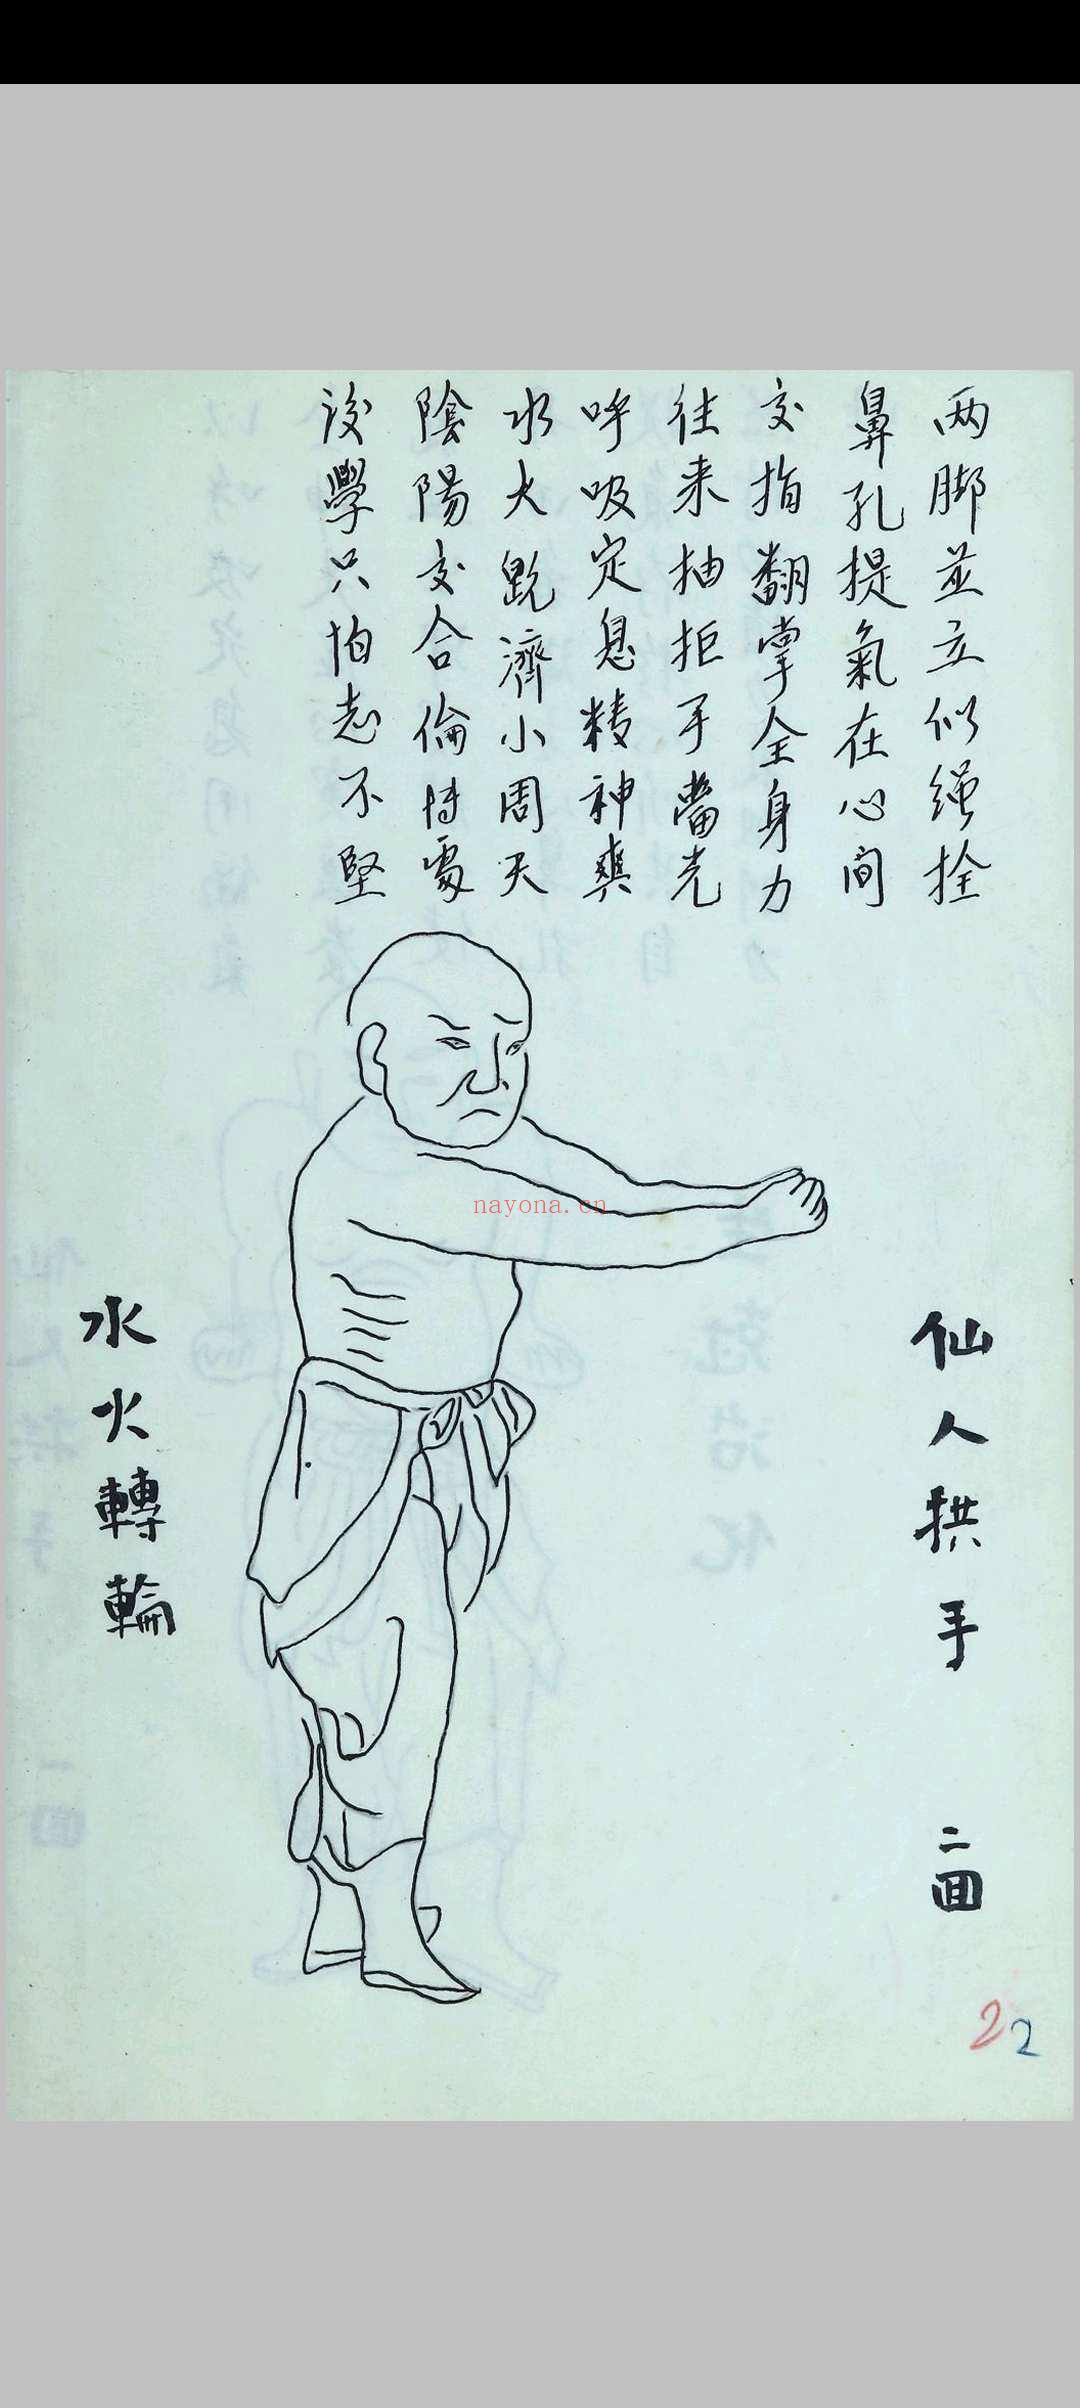 两脚並立似绳拴
鼻孔提氣在心间
交指翻掌全身力
往来抽拒手當先
呼吸定息精神爽
水火既濟小周天
陰陽交合倫時處
後學只怕志不堅
仙人拱手 二回
水火轉輪
nayona.cn
22